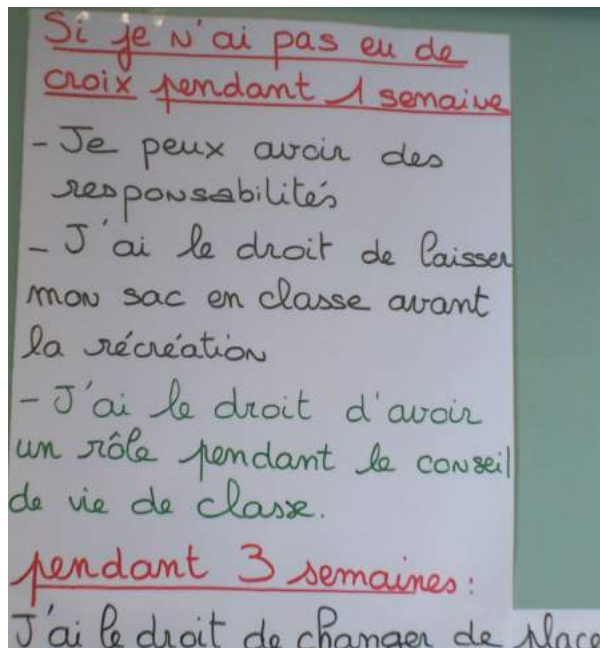 Si je n'ai pas eu de
croix pendant 1 semaine
- Je peux avoir des
responsabilités
- J'ai le droit de laisser
mon sac en classe avant
la récréation
- J'ai le droit d'avoir
un rôle pendant le conseil
de vie de classe.
pendant 3 semaines :
J'ai le droit de changer de place